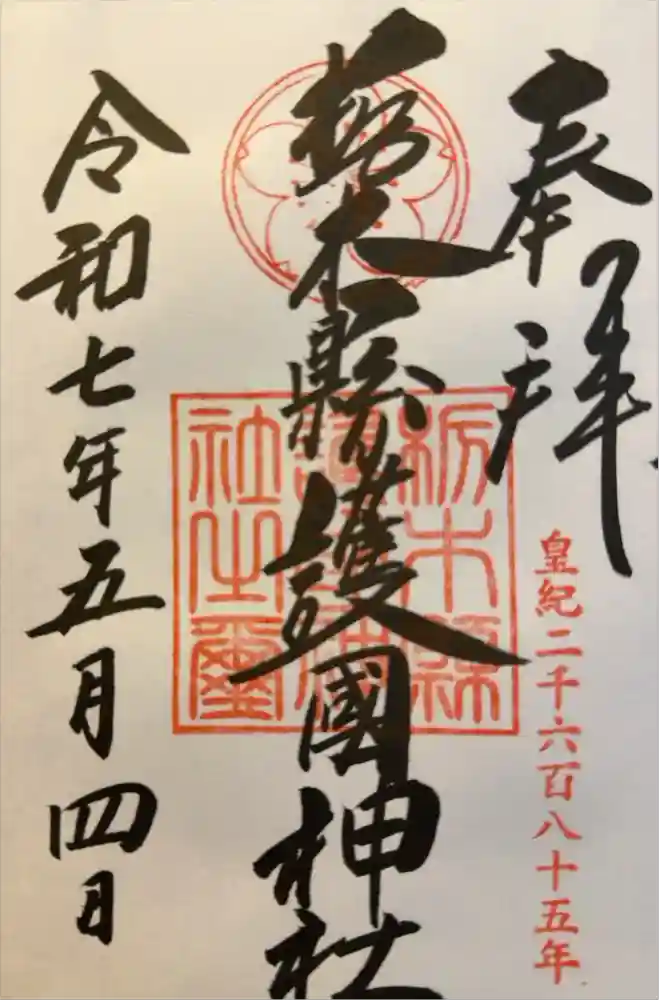 奉拝
皇紀二千六百八十五年
栃木縣護國神社
栃木縣護國神社之璽
令和七年五月四日